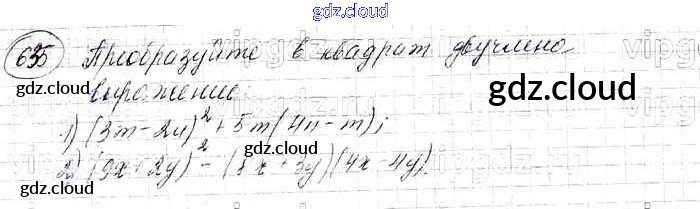 gdz.cloud
635 Преобразуйте в квадрат двучлена
выражение:
gdz.cloud
gdz.cloud
1) (3m-2n)² + 5m(4n-m);
2) (9x+2y)² - (8x+3y)(4x-4y).
gdz.cloud
gdz.cloud